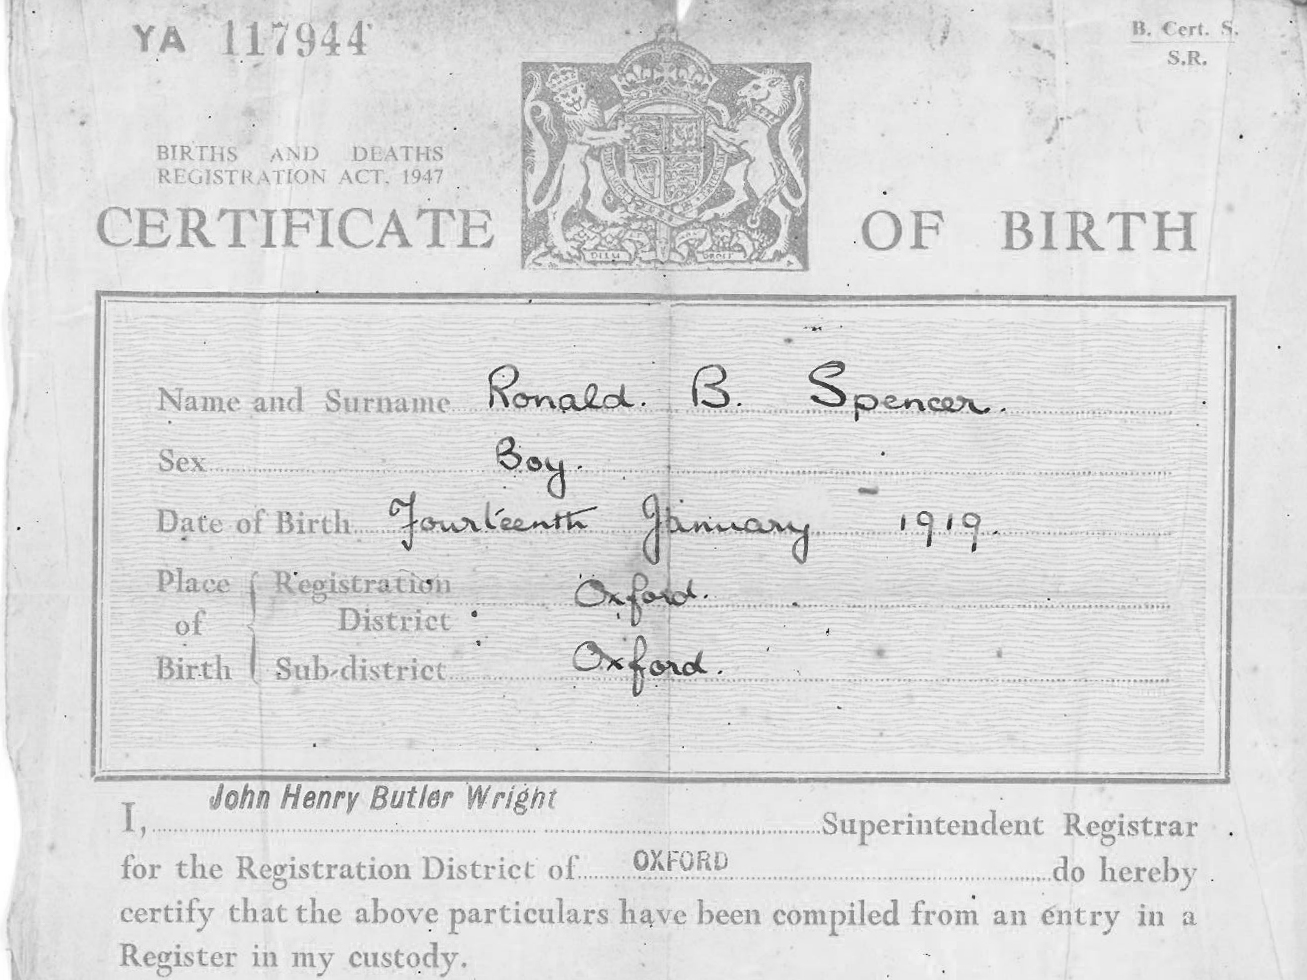 YA 117944
B. Cert. S.
S.R.
BIRTHS AND DEATHS
REGISTRATION ACT, 1947
CERTIFICATE OF BIRTH
DIEU DROIT
Name and Surname Ronald. B. Spencer.
Sex Boy.
Date of Birth Fourteenth January 1919.
Place of Birth { Registration District Oxford.
Sub-district Oxford.
I, John Henry Butler Wright Superintendent Registrar
for the Registration District of OXFORD do hereby
certify that the above particulars have been compiled from an entry in a
Register in my custody.